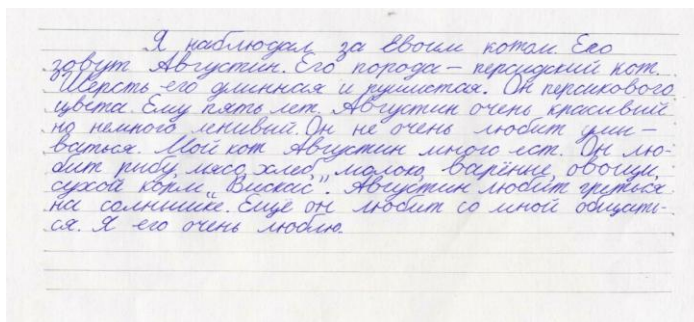 Я наблюдал за своим котом. Его
зовут Августин. Его порода – персидский кот.
Шерсть его длинная и пушистая. Он персикового
цвета. Ему пять лет. Августин очень красивый
но немного ленивый. Он не очень любит умы-
ваться. Мой кот Августин много ест. Он лю-
бит рыбу, мясо, хлеб, молоко, варённые, овощи,
сухой корм „Вискас". Августин любит греться
на солнышке. Ещё он любит со мной общать-
ся. Я его очень люблю.